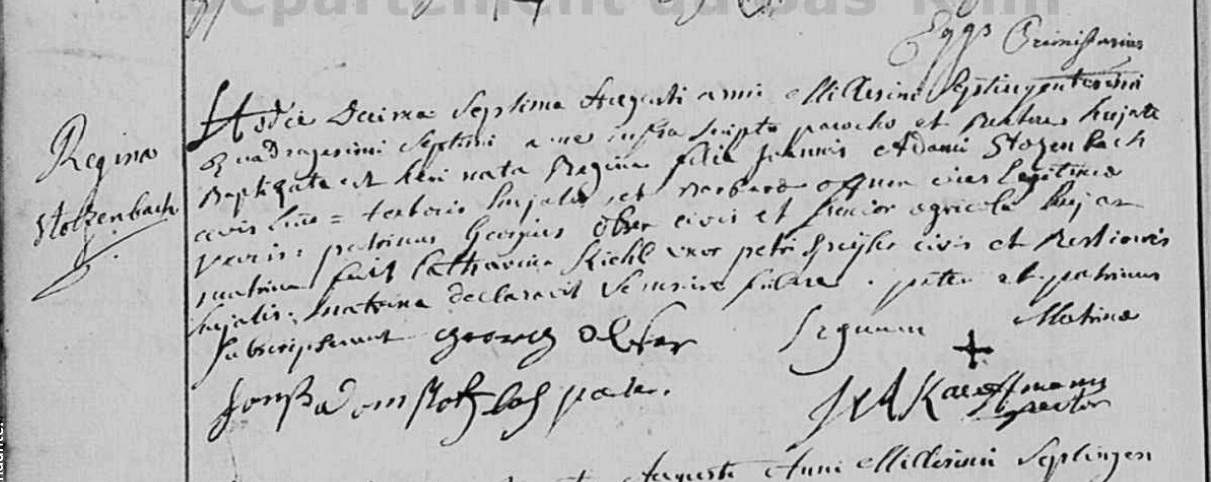 Département du Bas Rhin
Eggs Primissarius
Regina
Stoltzenbach
Hodie Decima Septima Augusti anni Millesimi Septingentesimi
Quadragesimi Septimi a me infra scripto parocho et Rectore hujate
Baptizata est heri nata Regina filia Joannis Adami Stozenbach
civis textoris hujatis et Barbarae civis Legitimae
patrinus Georgius Obser civis et Junior agricola hujas
matrina fuit Catharina Kiehl uxor petri civis et Restionis
hujatis. matrina declaravit se nescire. pater et patrinus
subscripserunt georg Signum Matrinae
+
Adom pater. Kauffmann
Rector
Augusti Anni Millesimi Septingen